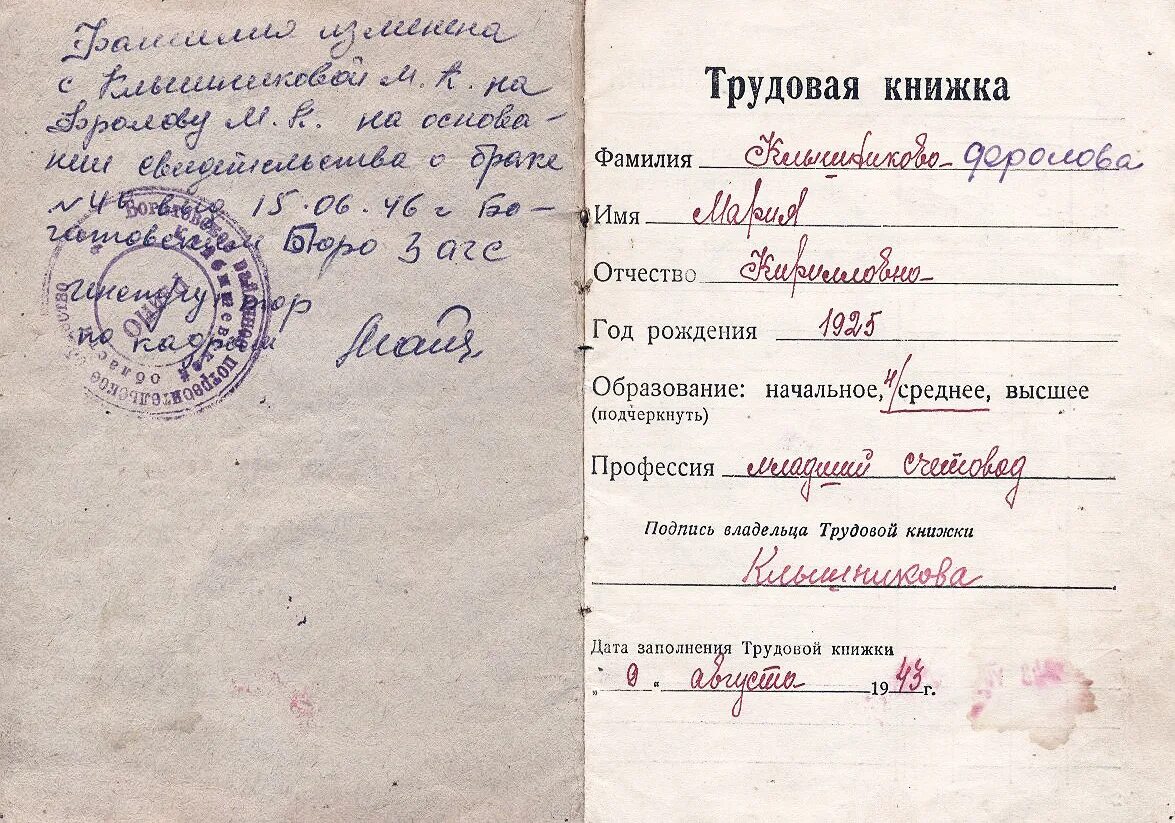 Фамилия изменена
с Клышниковой М. К. на
Фролову М. К. на основа-
нии свидетельства о браке
№ 46 выд 15.06.46 г Бо-
гатовским Бюро Загс
Инструктор
по кадрам
Богатовское районное потребительское общество
Куйбышевской области
Трудовая книжка
Фамилия Клышникова Фролова
Имя Мария
Отчество Кирилловна
Год рождения 1925
Образование: начальное, н/среднее, высшее
(подчеркнуть)
Профессия младший счетовод
Подпись владельца Трудовой книжки
Клышникова
Дата заполнения Трудовой книжки
„ 9 “ августа 1943 г.